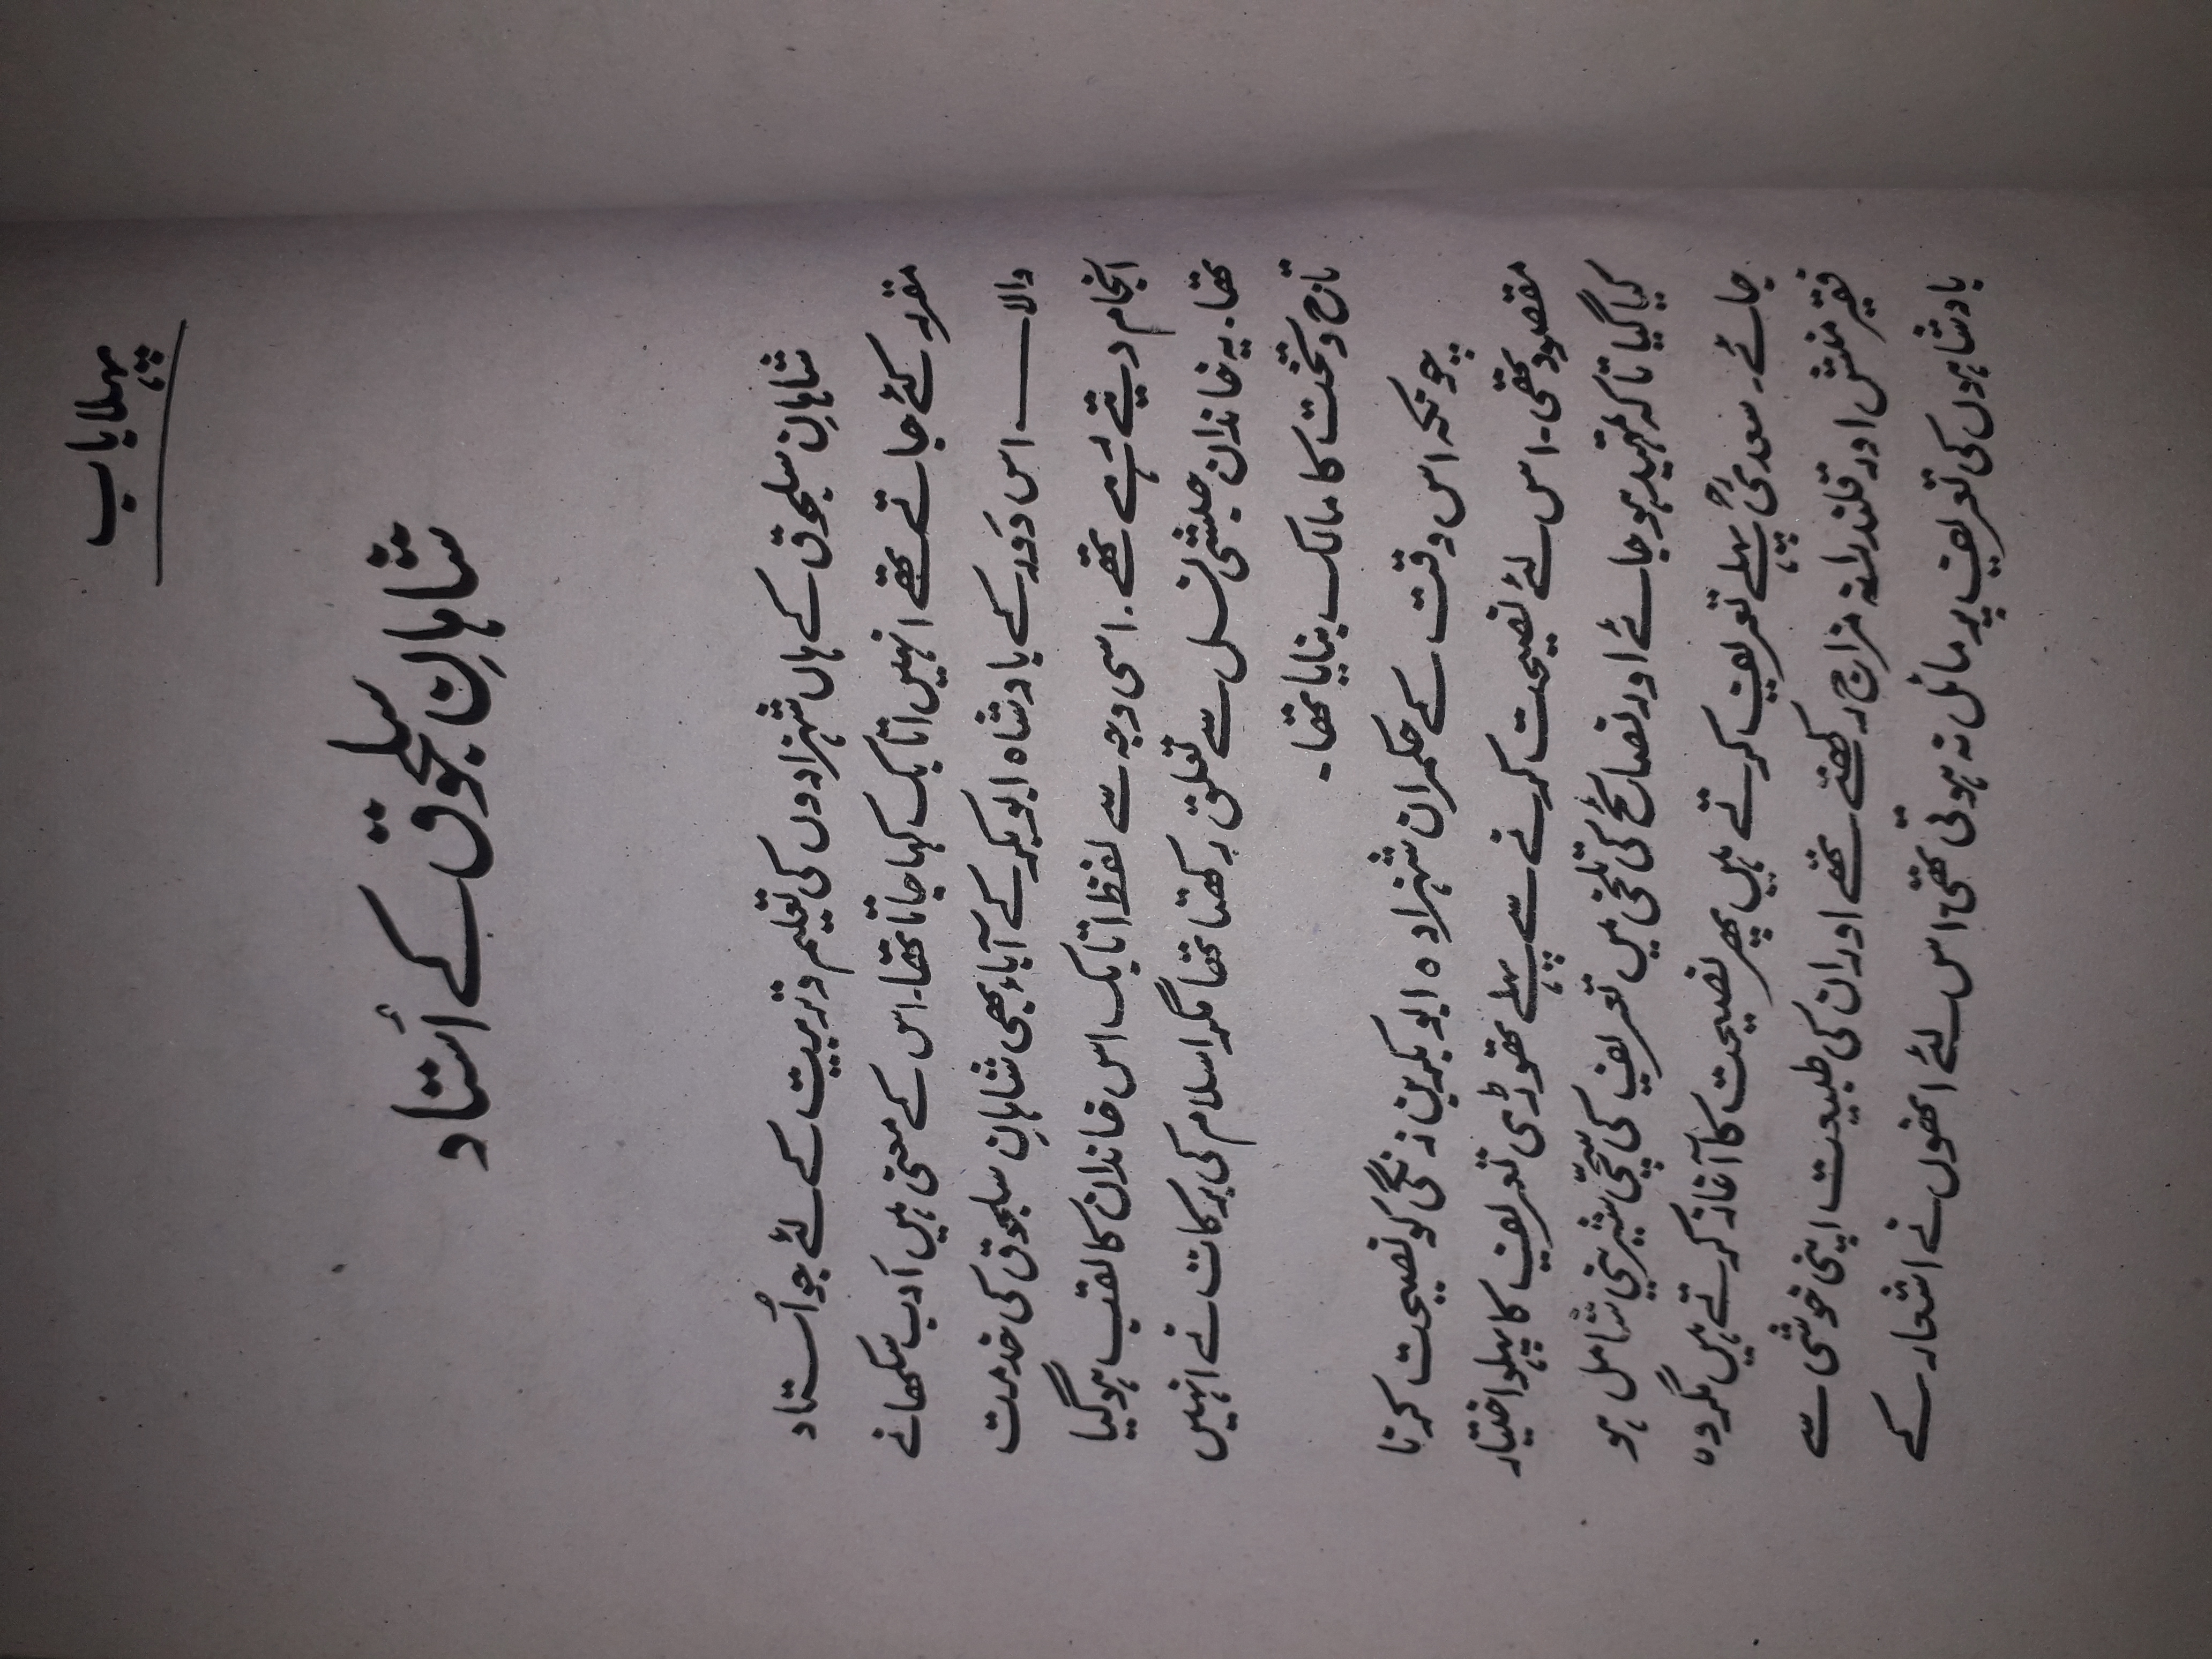 پہلا باب
شاہانِ سلجوق کے اُستاد
شاہانِ سلجوق کے ہاں شہزادوں کی تعلیم و تربیت کے لئے جو اُستاد
مقرر کئے جاتے تھے انہیں اتابک کہا جاتا تھا۔ اس کے معنی ہیں اَدب سکھانے
والا — اس دَور کے بادشاہ ابوبکر کے آباء بھی شاہانِ سلجوق کی خدمت
انجام دیتے رہے تھے۔ اسی وجہ سے لفظ اتابک اس خاندان کا لقب ہو گیا
تھا۔ یہ خاندان حبشی نسل سے تعلق رکھتا تھا مگر اسلام کی برکات نے انہیں
تاج و تخت کا مالک بنایا تھا۔
چونکہ اس وقت کے حکمران شہزادہ ابوبکر بن زنگی کو نصیحت کرنا
مقصود تھی۔ اس لئے نصیحت کرنے سے پہلے تھوڑی تعریف کا پہلو اختیار
کیا گیا تاکہ تمہید ہو جائے اور نصائح کی تلخی میں تعریف کی سچّی شیرینی شامل ہو
جائے۔ سعدیؒ پہلے تعریف کرتے ہیں پھر نصیحت کا آغاز کرتے ہیں مگر وہ
فقیر منش اور قلندرانہ مزاج رکھتے تھے اور ان کی طبیعت اپنی خوشی سے
بادشاہوں کی تعریف پر مائل نہ ہوتی تھی، اس لئے انھوں نے اشعار کے